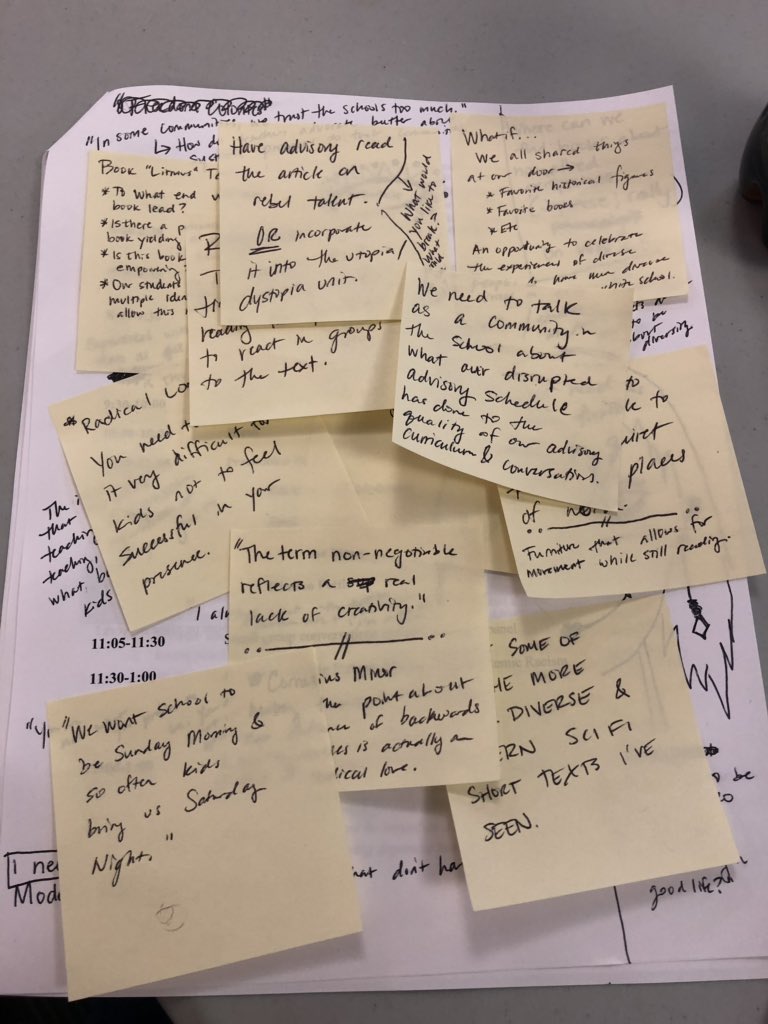 "In some communities we trust the schools too much."
↳ How do
Book "Litmus" Te
* To what end
book lead?
* Is there a p
book yielding
* Is this book
empowering?
* Our students
multiple iden
allow this
Have advisory read
the article on
rebel talent.
OR incorporate
it into the utopia
dystopia unit.
What would
you like to
break?
What if...
We all shared things
at our door →
* Favorite historical figures
* Favorite books
* Etc
An opportunity to celebrate
the experiences of diverse
reading
to react in groups
to the text.
We need to talk
as a community in
the school about
what our disrupted
advisory schedule
has done to the
quality of our advisory
curriculum & conversations.
to be
about
diversity
* Radical Lo
You need t
it very difficult for
kids not to feel
successful in your
presence.
to
k to
uiet
places
of
Furniture that allows for
movement while still reading.
The i
that
teaching
teaching,
what, b
kids
"The term non-negotiable
reflects a real
lack of creativity."
I al
11:05-11:30
11:30-1:00
ius Minor
he point about
of backwards
es is actually an
ical love.
SOME OF
HE MORE
DIVERSE &
ERN SCI FI
SHORT TEXTS I'VE
SEEN.
"We want school to
be Sunday Morning &
so often kids
bring us Saturday
Night."
to be
I ne
Mod
hat don't ha
good life?